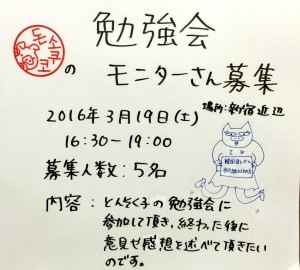 勉強会
の モニターさん募集
場所:新宿近辺
2016年3月19日(土)
16:30-19:00
募集人数:5名
内容:とんちく子の勉強会に
参加して頂き、終わった後に
意見や感想を述べて頂きたい
のです。